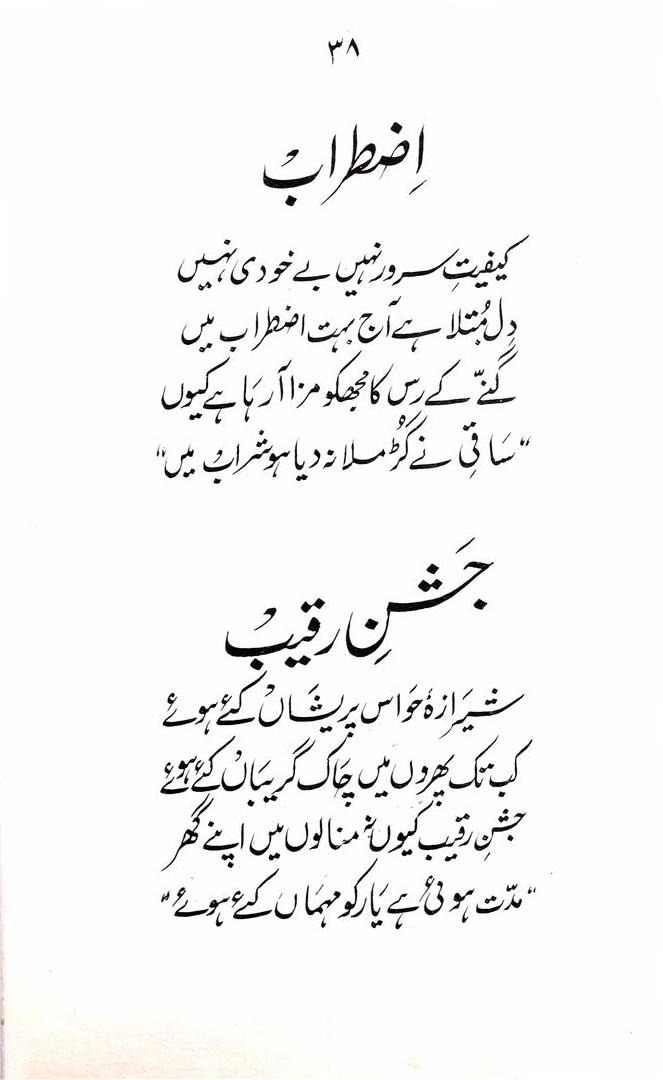 ۳۸
اِضطراب
کیفیتِ سرور نہیں بے خودی نہیں
دِل مُبتلا ہے آج بہت اضطراب میں
گنّے کے رس کا مجھکو مزا آ رہا ہے کیوں
“سَاقی نے گُڑ ملا نہ دیا ہو شراب میں”
جَشنِ رقیب
شیرَازۂ حَواس پریشَاں کئے ہوئے
کب تک پھروں میں چَاک گریبَاں کئے ہوئے
جشنِ رقیب کیوں نہ منا لوں میں اپنے گھر
“مدّت ہوئی ہے یَار کو مہماں کئے ہوئے”